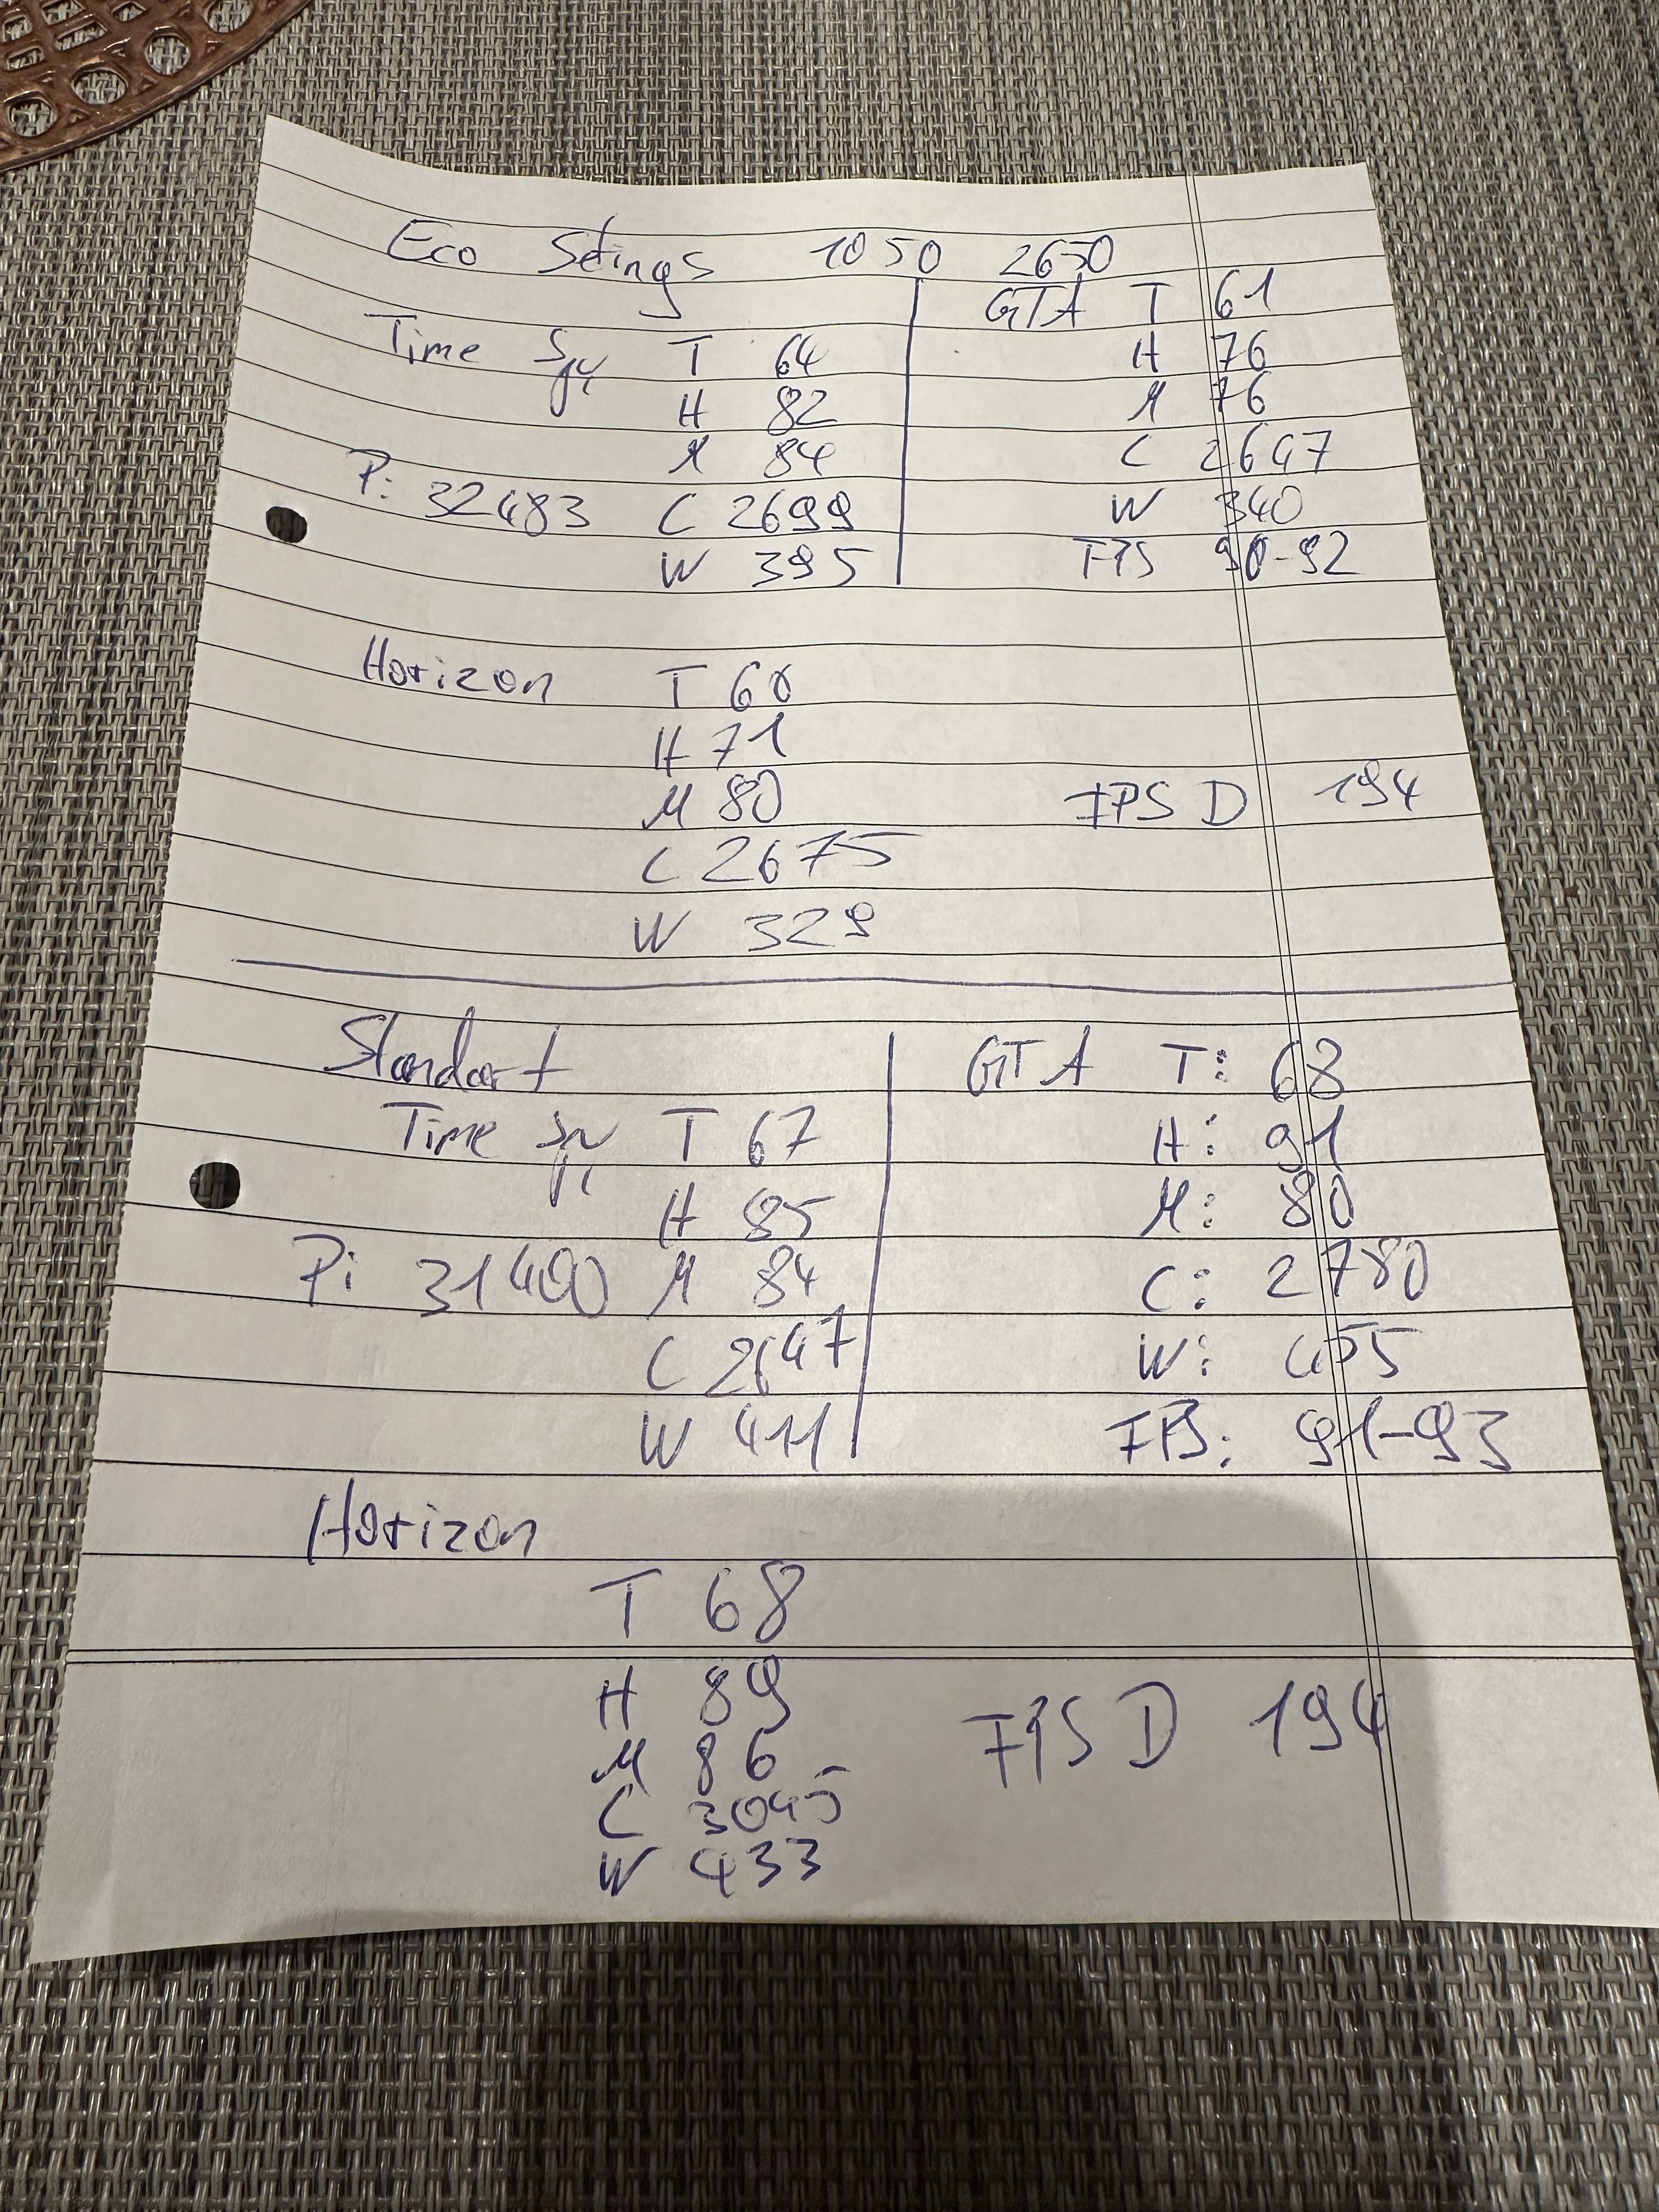 Eco Setings 1050 2650
Time Spy T 64
H 82
M 84
P: 32483 C 2699
W 395
GTA T 61
H 76
M 76
C 2647
W 340
FPS 90-92
Horizon T 60
H 71
M 80
C 2675
W 329
FPS D 194
Standart
Time Spy T 67
H 85
P: 31400 M 84
C 2647
W 411
GTA T: 68
H: 91
M: 80
C: 2780
W: 455
FPS: 91-93
Horizon
T 68
H 89
M 86
C 3045
W 433
FPS D 194